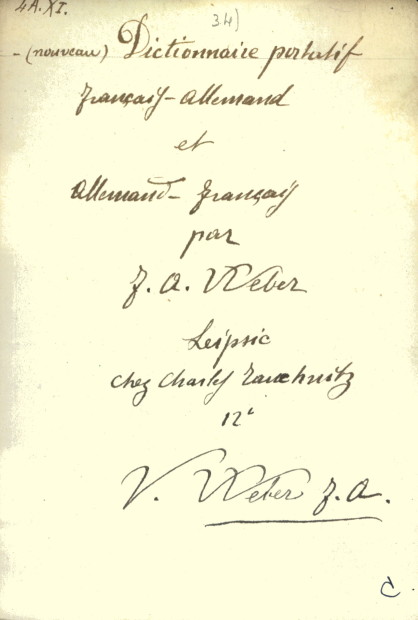 4A.XI.
34)
- (nouveau) Dictionnaire portatif
français - allemand
et
allemand - français
par
F. A. Weber
Leipsic
chez Charles Tauchnitz
12°
V. Weber F. A.
C